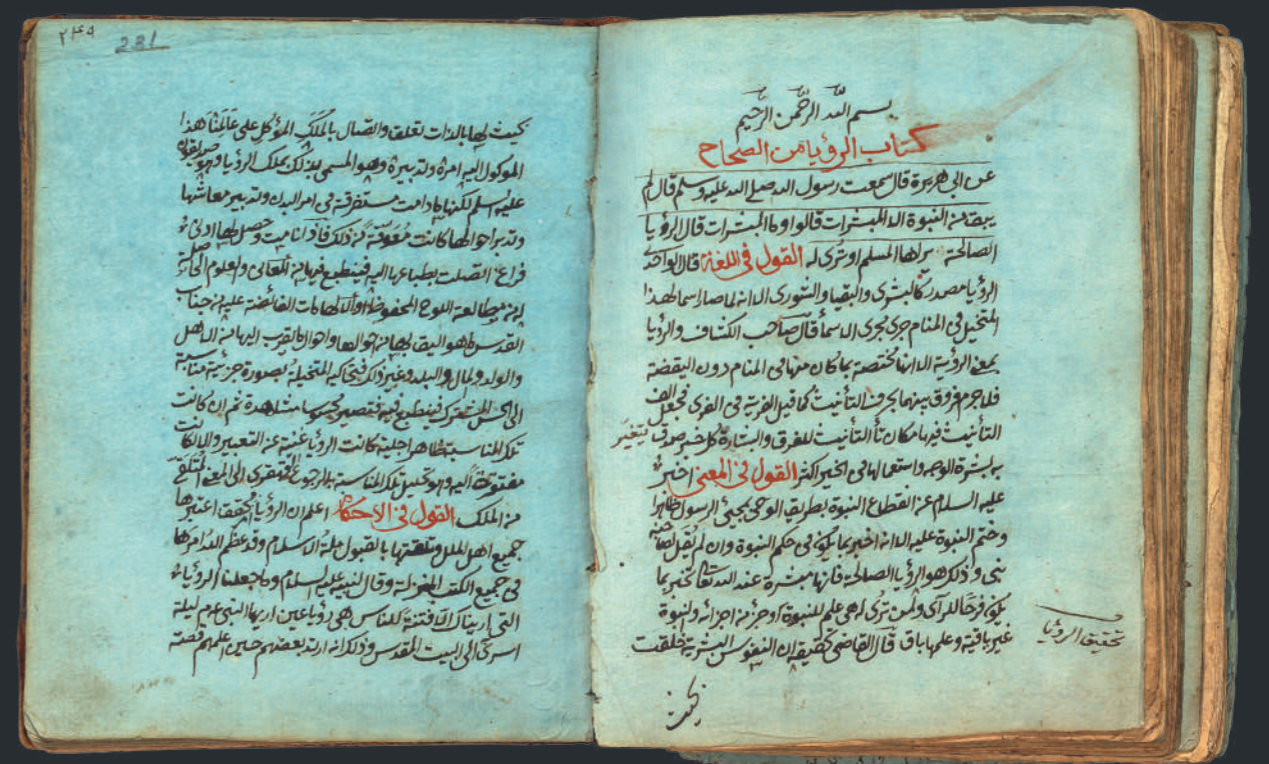 بسم الله الرحمن الرحيم
كتاب الرؤيا من الصحاح
عن ابى هريرة قال سمعت رسول الله صلى الله عليه وسلم قال لم
يبق من النبوة الا المبشرات قالوا وما المبشرات قال الرؤيا
الصالحة يراها المسلم او ترى له القول فى اللغة قال الواحدى
الرؤيا مصدر كالبشرى والبقيا والشورى الا انه لما صار اسما لهذا
المتخيل فى المنام جرى مجرى الاسماء قال صاحب الكشاف والرؤيا
بمعنى الرؤية الا انها مختصة بما كان منها فى المنام دون اليقضة
فلا جرم فروق بينهما بحرف التأنيث كما قيل القربة فى القربى فجعل الف
التأنيث فيها مكان تأ التأنيث للفرق والبشارة كل خبر صدق يتغير
به بشرة الوجه واستعمالها فى الخير اكثر القول فى المعنى اخبر
عليه السلام عن انقطاع النبوة بطريق الوحى بمجئ الرسول ظاهرا
وختم النبوة عليه الا انه اخبر بما يكون فى حكم النبوة وان لم يقل لصاحبه
نبى وذلك هو الرؤيا الصالحة فانها مبشرة عند الله تعالى تخبر بما
يكون فرحا للرآى ولمن ترى له وهى علم للنبوة او جزء من اجزائه والنبوة
غير باقية وعلمها باق قال القاضى ان النفوس البشرية خلقت
تحقيق الرؤيا
بحيث
٢٤٥
231
بحيث لها بالذات تعلق واتصال بالملك المؤكل على عالمنا هذا
الموكول اليه امره وتدبيره وهو المسمى بذلك بملك الرؤيا وهو
عليه السلم لكنها ما دامت مستغرقة فى امر البدن وتدبير معاشها
وتدبر احوالها كانت معوقة عن ذلك فاذا نامت وحصل لها ادنى
فراغ اتصلت بطباعها اليه فينطبع فيها من المعانى والعلوم الحاصلة
له من مطالعة اللوح المحفوظ والالهامات الفائضة عليه من جناب
القدس ما هو اليق بها من احوالها واحوال ما يقرب اليها من الاهل
والولد والمال والبلد وغير ذلك فتحاكيه المتخيلة بصورة جزئية مناسبة
الى الحس المشترك فينطبع فيه فتصير محسوسا مشاهدة ثم ان كانت
تلك المناسبة ظاهرا جلية كانت الرؤيا غنية عن التعبير والا كانت
مفتقرة اليه وهو تحليل تلك المناسبة بالرجوع القهقرى الى المعنى المتلقى
من الملك القول فى الاحكام اعلم ان الرؤيا تحقق اعتبرها
جميع اهل الملل وتلقتها بالقبول ملة الاسلام وقد عظم الله امرها
فى جميع الكتب المنزلة وقال لنبيه عليه السلام وما جعلنا الرؤيا
التى اريناك الا فتنة للناس هى رؤيا عين اريها النبى عم ليلة
اسرى الى البيت المقدس وذلك انه ارتد بعضهم حين اعلمهم قصة